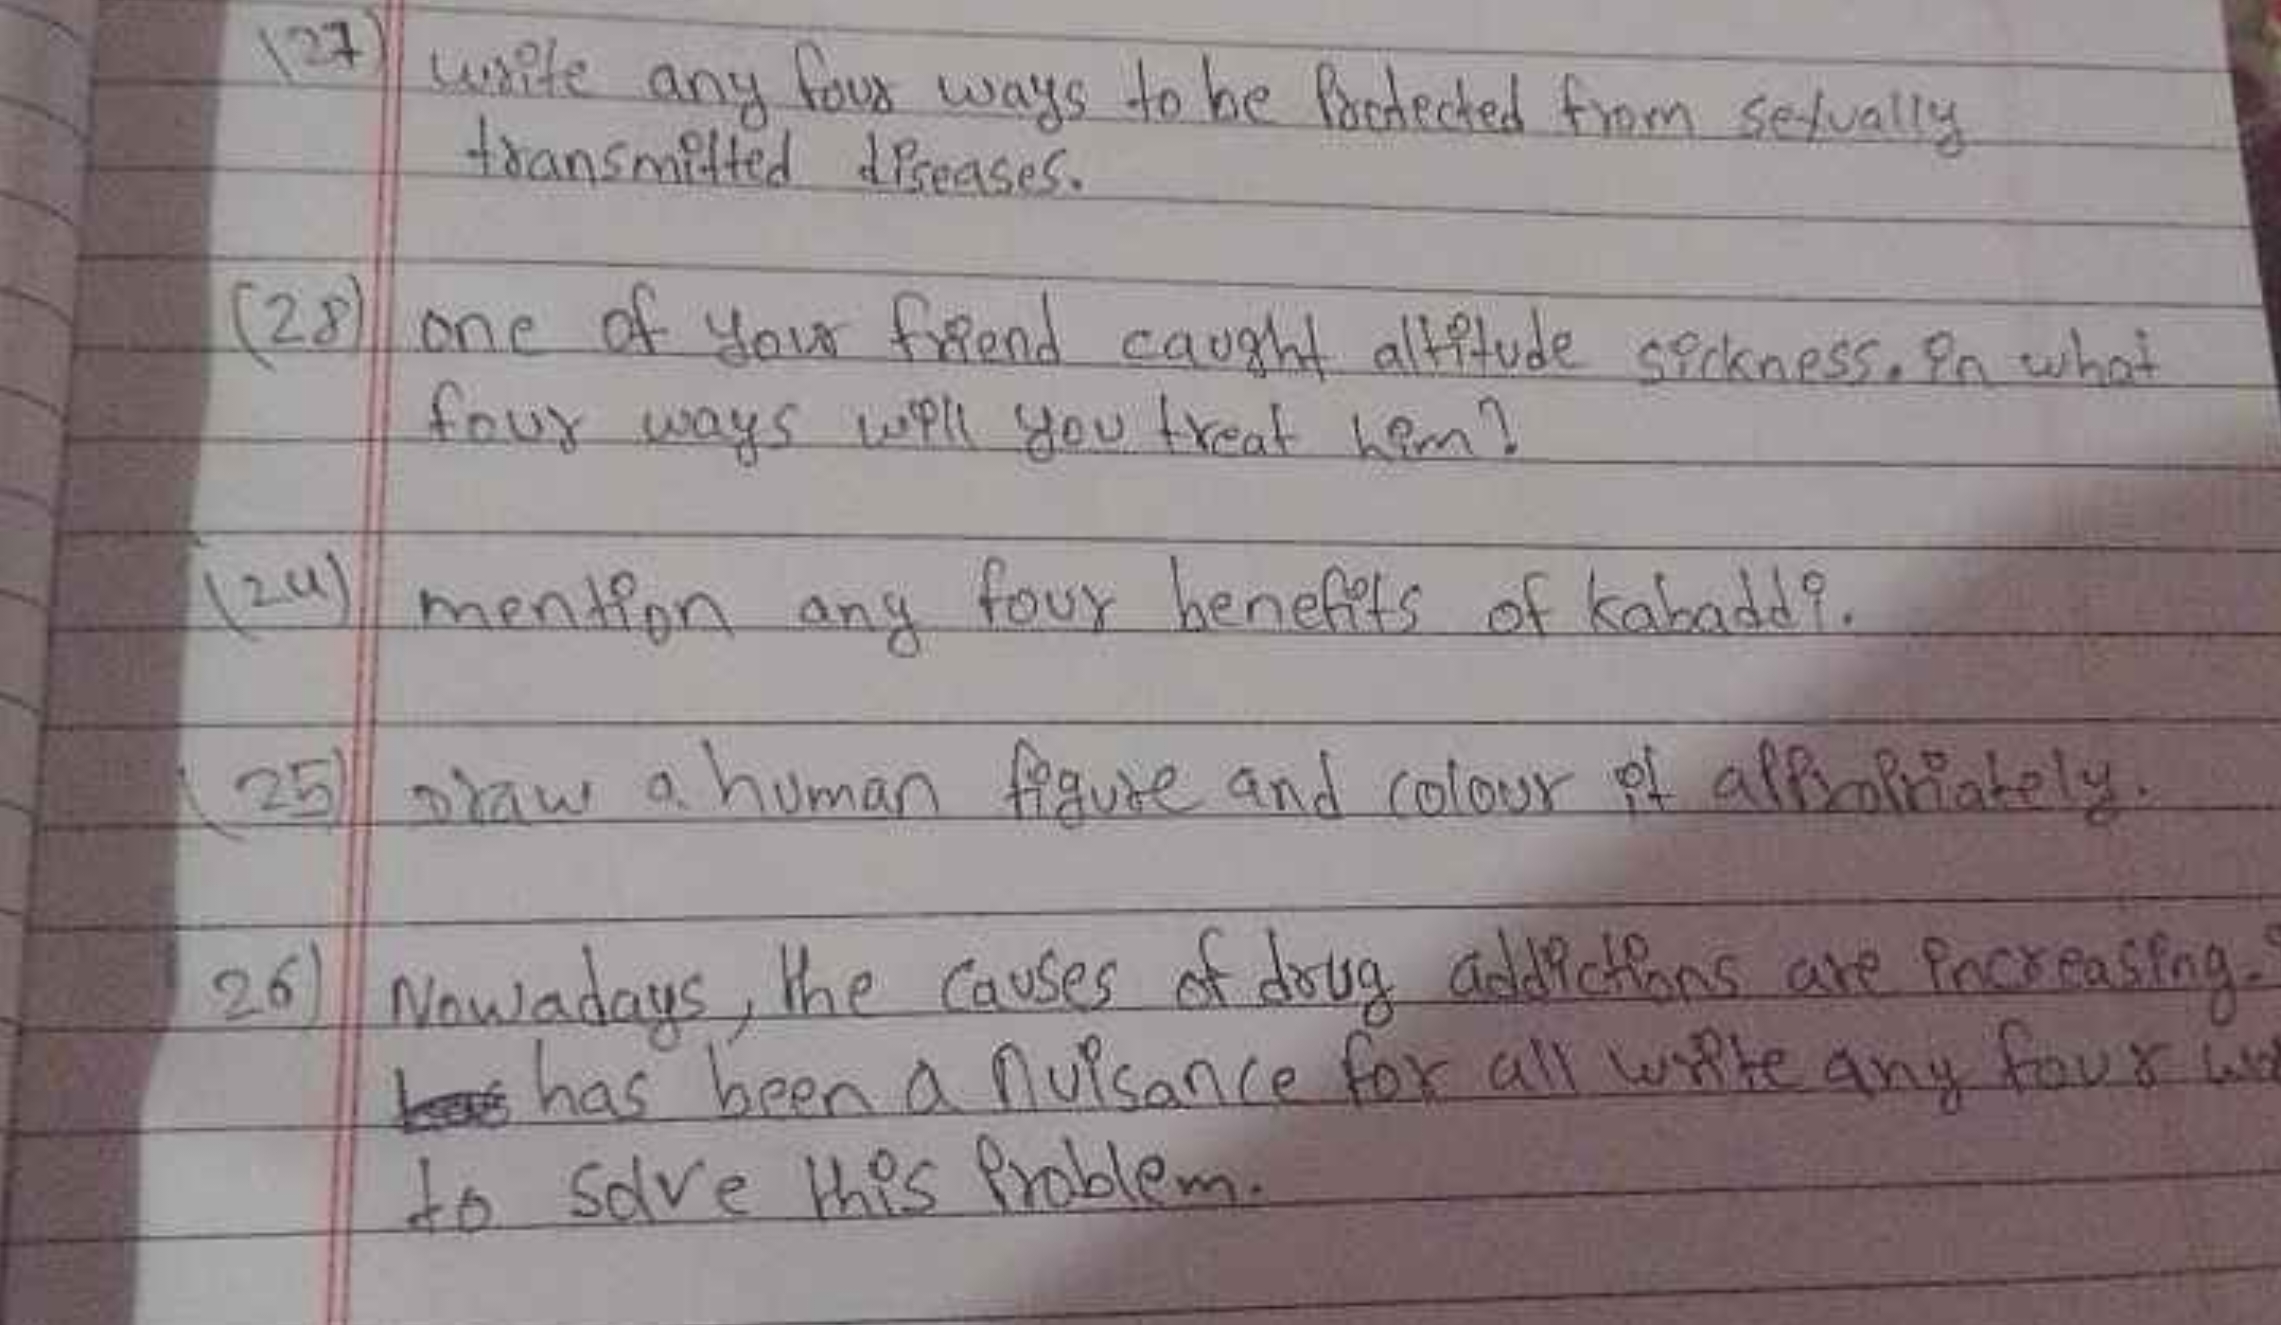 (27) write any four ways to be Protected from sexually
transmitted diseases.
(28) one of your friend caught altitude sickness. in what
four ways will you treat him?
(24) mention any four benefits of kabaddi.
(25) Draw a human figure and colour it appropriately.
26) Nowadays, the causes of drug addictions are increasing.
has been a nuisance for all write any four
to solve this Problem.